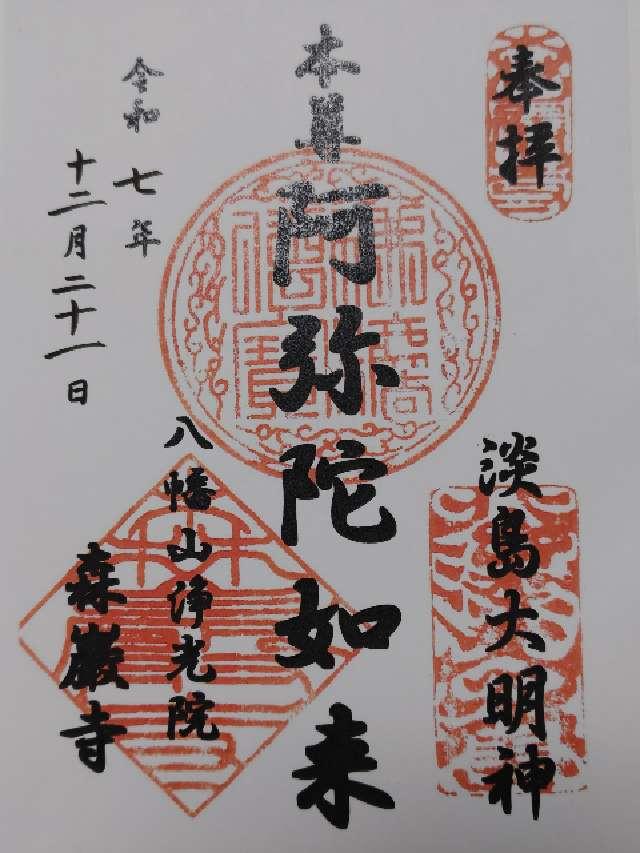 奉拝
淡島大明神
本尊
阿弥陀如来
八幡山浄光院
森巌寺
令和七年
十二月二十一日